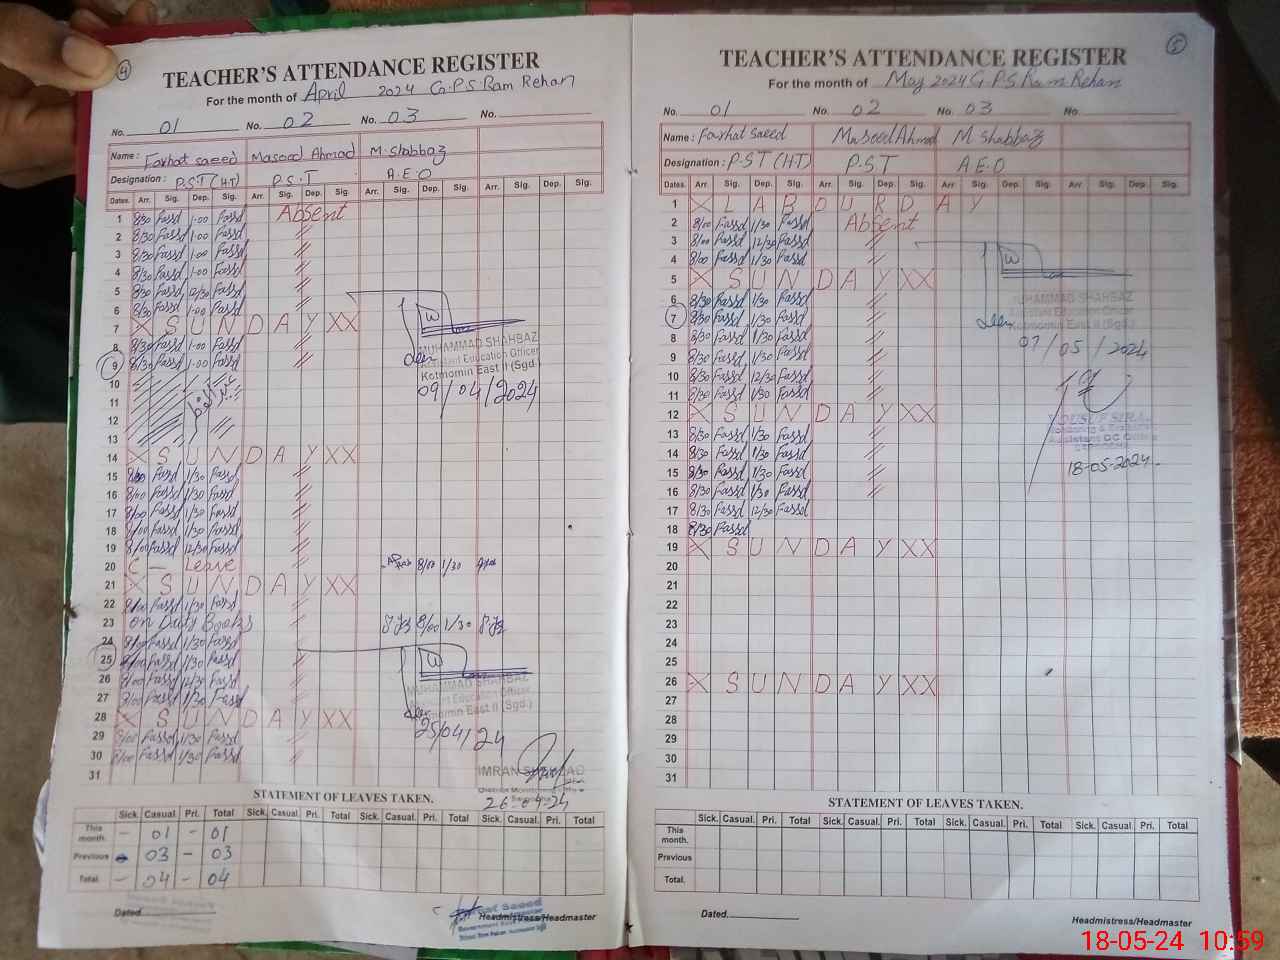 4
TEACHER'S ATTENDANCE REGISTER
For the month of April 2024 G.P.S. Ram Rehan
No. 01 No. 02 No. 03 No.
Name : Farhat saeed Masood Ahmad M. Shabbaz
Designation : P.S.T (H.T) P.S.T A.E.O
Dates. Arr. Sig. Dep. Sig. Arr. Sig. Dep. Sig. Arr. Sig. Dep. Sig. Arr. Sig. Dep. Sig.
1 8/30 Fassd 1.00 Fassd Absent
2 8/30 Fassd 1.00 Fassd //
3 8/30 Fassd 1.00 Fassd //
4 8/30 Fassd 1.00 Fassd //
5 8/30 Fassd 12/30 Fassd //
6 8/30 Fassd 1.00 Fassd //
7 X S U N D A Y X X
8 8/30 Fassd 1.00 Fassd //
9 8/30 Fassd 1.00 Fassd //
MUHAMMAD SHAHBAZ
Assistant Education Officer
Kotmomin East II (Sgd.)
09/04/2024
10
11 عید الفطر
12
13
14 X S U N D A Y X X
15 8/00 Fassd 1/30 Fassd //
16 8/00 Fassd 1/30 Fassd //
17 8/00 Fassd 1/30 Fassd //
18 8/00 Fassd 1/30 Fassd //
19 8/00 Fassd 12/30 Fassd //
20 C — Leave 8/00 1/30
21 X S U N D A Y X X
22 8/00 Fassd 1/30 Fassd //
23 on Duty Books // 8/00 1/30
24 8/00 Fassd 1/30 Fassd
25 8/00 Fassd 1/30 Fassd //
26 8/00 Fassd 12/30 Fassd //
27 8/00 Fassd 1/30 Fassd //
MUHAMMAD SHAHBAZ
Assistant Education Officer
Kotmomin East II (Sgd.)
25/04/24
28 X S U N D A Y X X
29 8/00 Fassd 1/30 Fassd //
30 8/00 Fassd 1/30 Fassd //
31
IMRAN SHAHZAD
26-04-24
STATEMENT OF LEAVES TAKEN.
Sick. Casual. Pri. Total Sick. Casual. Pri. Total Sick. Casual. Pri. Total Sick. Casual. Pri. Total
This month. - 01 - 01
Previous - 03 - 03
Total. - 04 - 04
Dated
Headmistress/Headmaster
5
TEACHER'S ATTENDANCE REGISTER
For the month of May 2024 G.P.S Ram Rehan
No. 01 No. 02 No. 03 No.
Name : Farhat saeed Masood Ahmad M. Shabbaz
Designation : P.S.T (H.T) P.S.T A.E.O
Dates. Arr. Sig. Dep. Sig. Arr. Sig. Dep. Sig. Arr. Sig. Dep. Sig. Arr. Sig. Dep. Sig.
1 X L A B O U R D A Y
2 8/00 Fassd 1/30 Fassd Absent
3 8/00 Fassd 12/30 Fassd //
4 8/00 Fassd 1/30 Fassd //
5 X S U N D A Y X X
6 8/30 Fassd 1/30 Fassd //
7 8/30 Fassd 1/30 Fassd //
MUHAMMAD SHAHBAZ
Assistant Education Officer
Kotmomin East II (Sgd.)
07/05/2024
8 8/30 Fassd 1/30 Fassd //
9 8/30 Fassd 1/30 Fassd //
10 8/30 Fassd 12/30 Fassd //
11 8/30 Fassd 1/30 Fassd //
12 X S U N D A Y X X
13 8/30 Fassd 1/30 Fassd //
14 8/30 Fassd 1/30 Fassd //
15 8/30 Fassd 1/30 Fassd //
16 8/30 Fassd 1/30 Fassd //
17 8/30 Fassd 12/30 Fassd
18 8/30 Fassd
18-05-2024
19 X S U N D A Y X X
20
21
22
23
24
25
26 X S U N D A Y X X
27
28
29
30
31
STATEMENT OF LEAVES TAKEN.
Sick. Casual. Pri. Total Sick. Casual. Pri. Total Sick. Casual. Pri. Total Sick. Casual. Pri. Total
This month.
Previous
Total.
Dated.
Headmistress/Headmaster
18-05-24 10:59